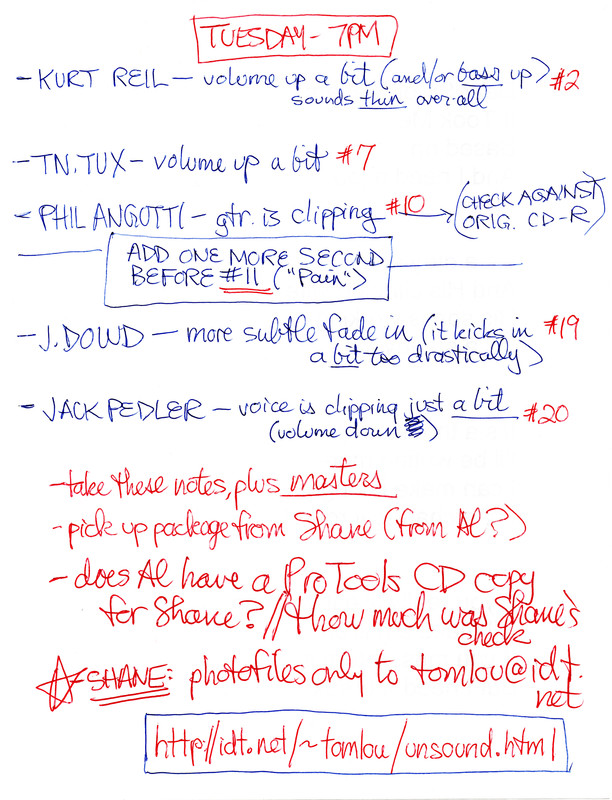 TUESDAY - 7PM
- KURT REIL - volume up a bit (and/or bass up) #2
sounds thin over-all
- TN. TUX - volume up a bit #7
- PHIL ANGOTTI - gtr. is clipping #10 → (CHECK AGAINST
ORIG. CD-R)
ADD ONE MORE SECOND
BEFORE #11 ("Pain")
- J. DOWD - more subtle fade in (it kicks in #19
a bit too drastically)
- JACK PEDLER - voice is clipping just a bit #20
(volume down)
- take these notes, plus masters
- pick up package from Shane (from Al?)
- does Al have a ProTools CD copy
for Shane? // + how much was Shane's
check
☆ SHANE: photofiles only to tomlou@idt.
net
http://idt.net/~tomlou/unsound.html